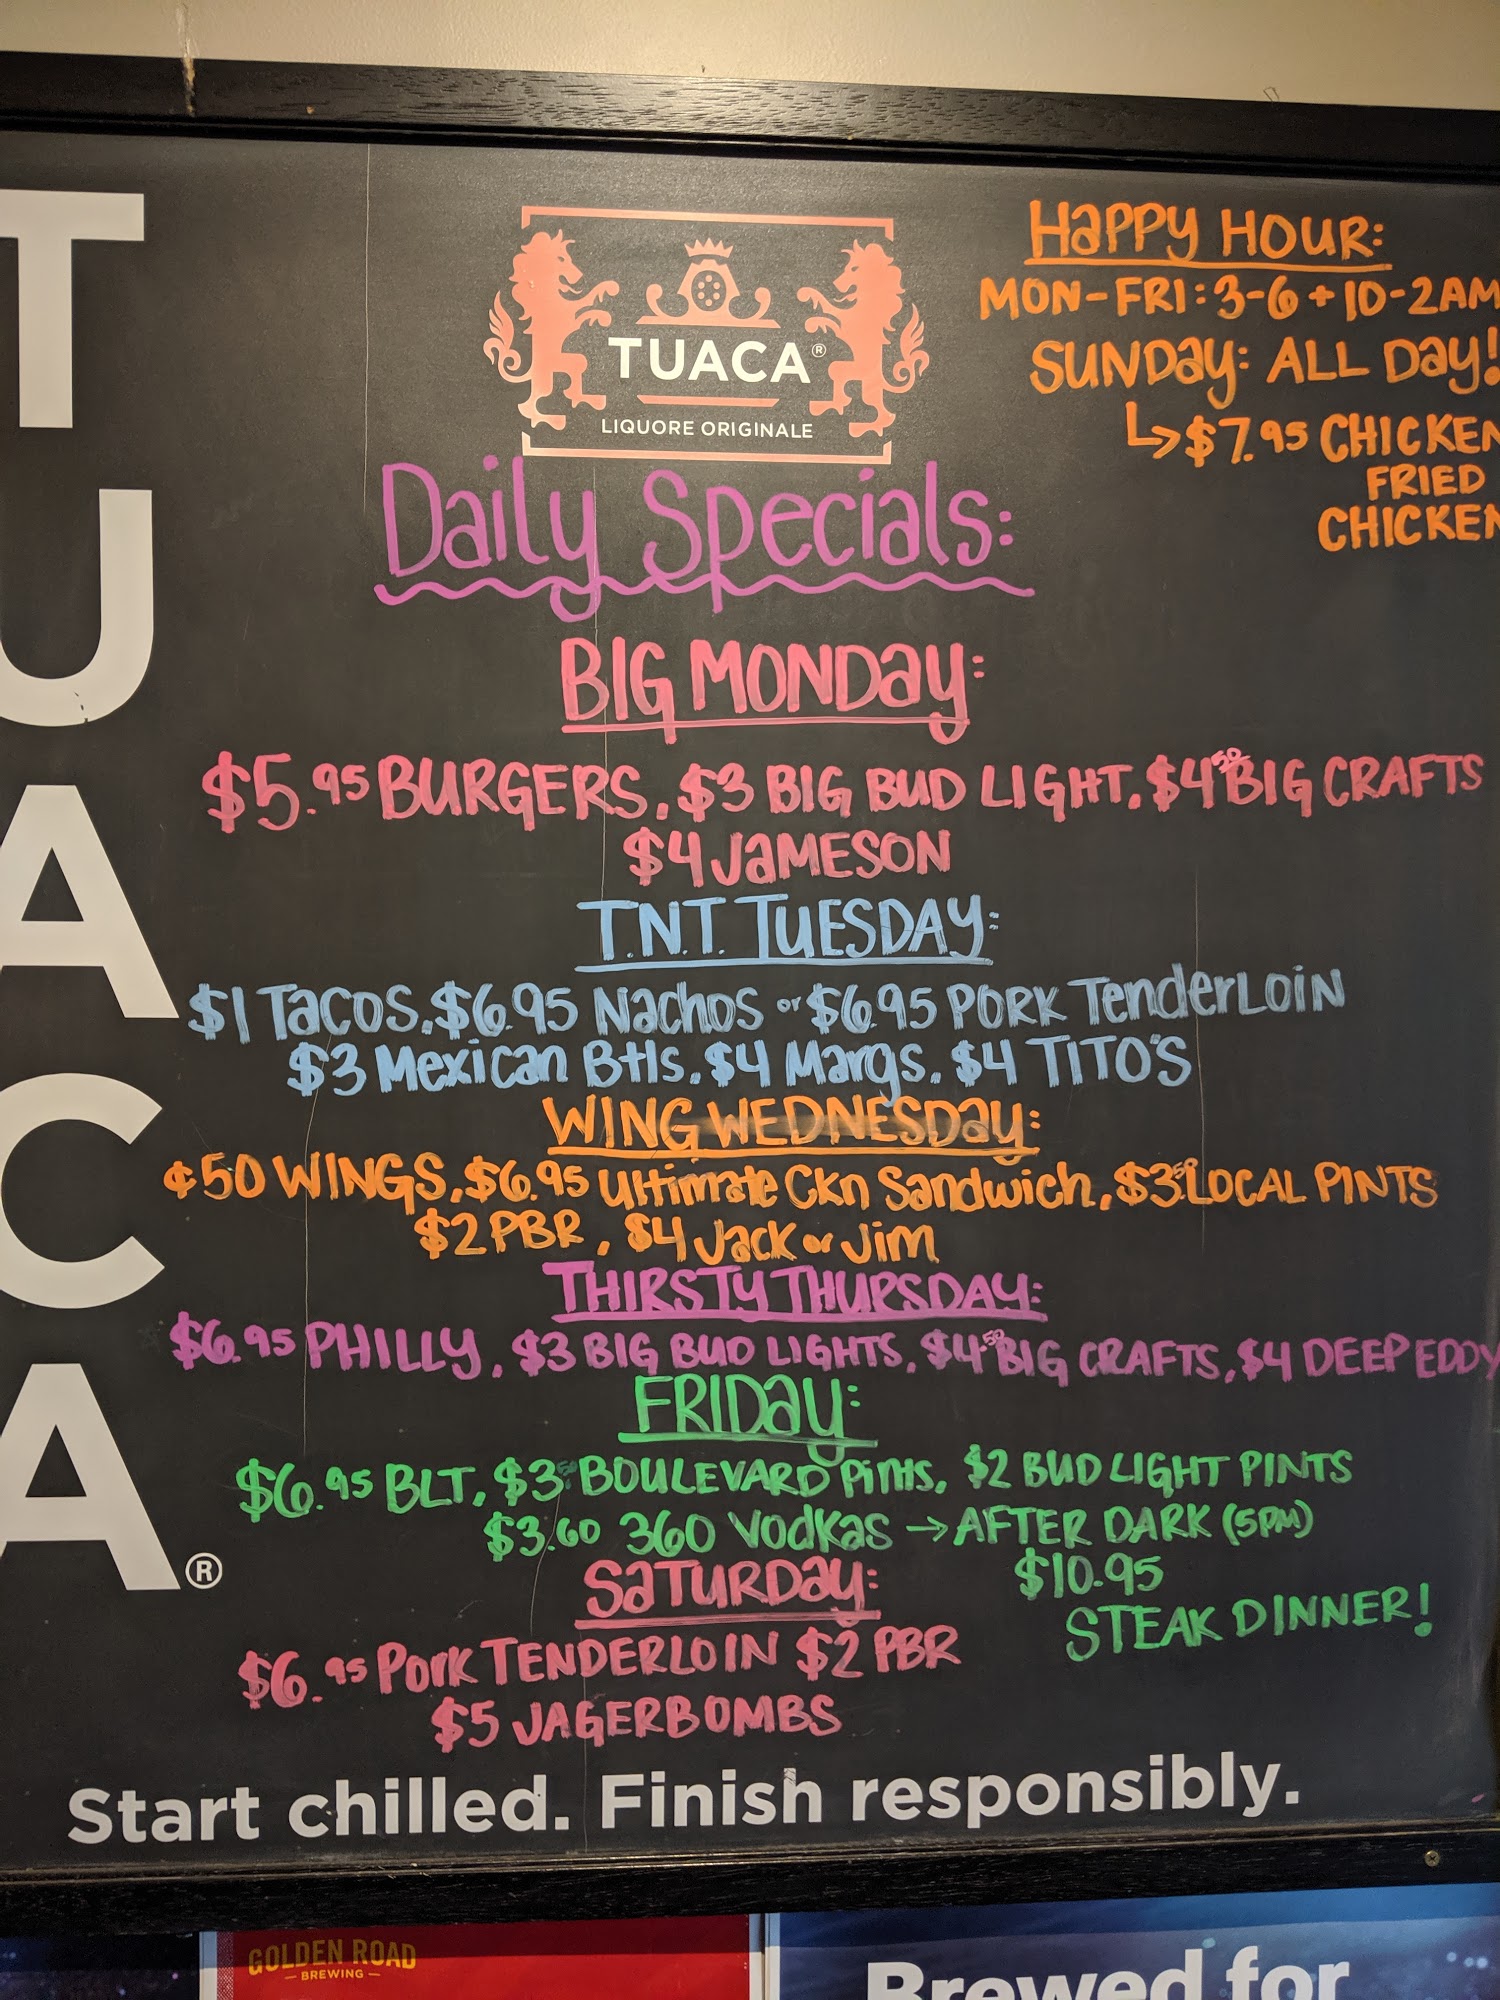 TUACA®
TUACA®
LIQUORE ORIGINALE
HAPPY HOUR:
MON-FRI: 3-6 + 10-2AM
SUNDAY: ALL DAY!
↳ $7.95 CHICKEN
FRIED
CHICKEN
Daily Specials:
BIG MONDAY:
$5.95 BURGERS, $3 BIG BUD LIGHT, $4.50 BIG CRAFTS
$4 JAMESON
T.N.T. TUESDAY:
$1 Tacos, $6.95 Nachos or $6.95 PORK TenderLoin
$3 Mexican Btls, $4 Margs, $4 TITO'S
WING WEDNESDAY:
¢50 WINGS, $6.95 Ultimate Ckn Sandwich, $3.50 LOCAL PINTS
$2 PBR, $4 Jack or Jim
THIRSTY THURSDAY:
$6.95 PHILLY, $3 BIG BUD LIGHTS, $4.50 BIG CRAFTS, $4 DEEP EDDY
FRIDAY:
$6.95 BLT, $3.50 BOULEVARD Pints, $2 BUD LIGHT PINTS
$3.60 360 Vodkas → AFTER DARK (5PM)
$10.95
STEAK DINNER!
SATURDAY:
$6.95 Pork TENDERLOIN $2 PBR
$5 JAGERBOMBS
Start chilled. Finish responsibly.
GOLDEN ROAD
— BREWING —
Brewed for